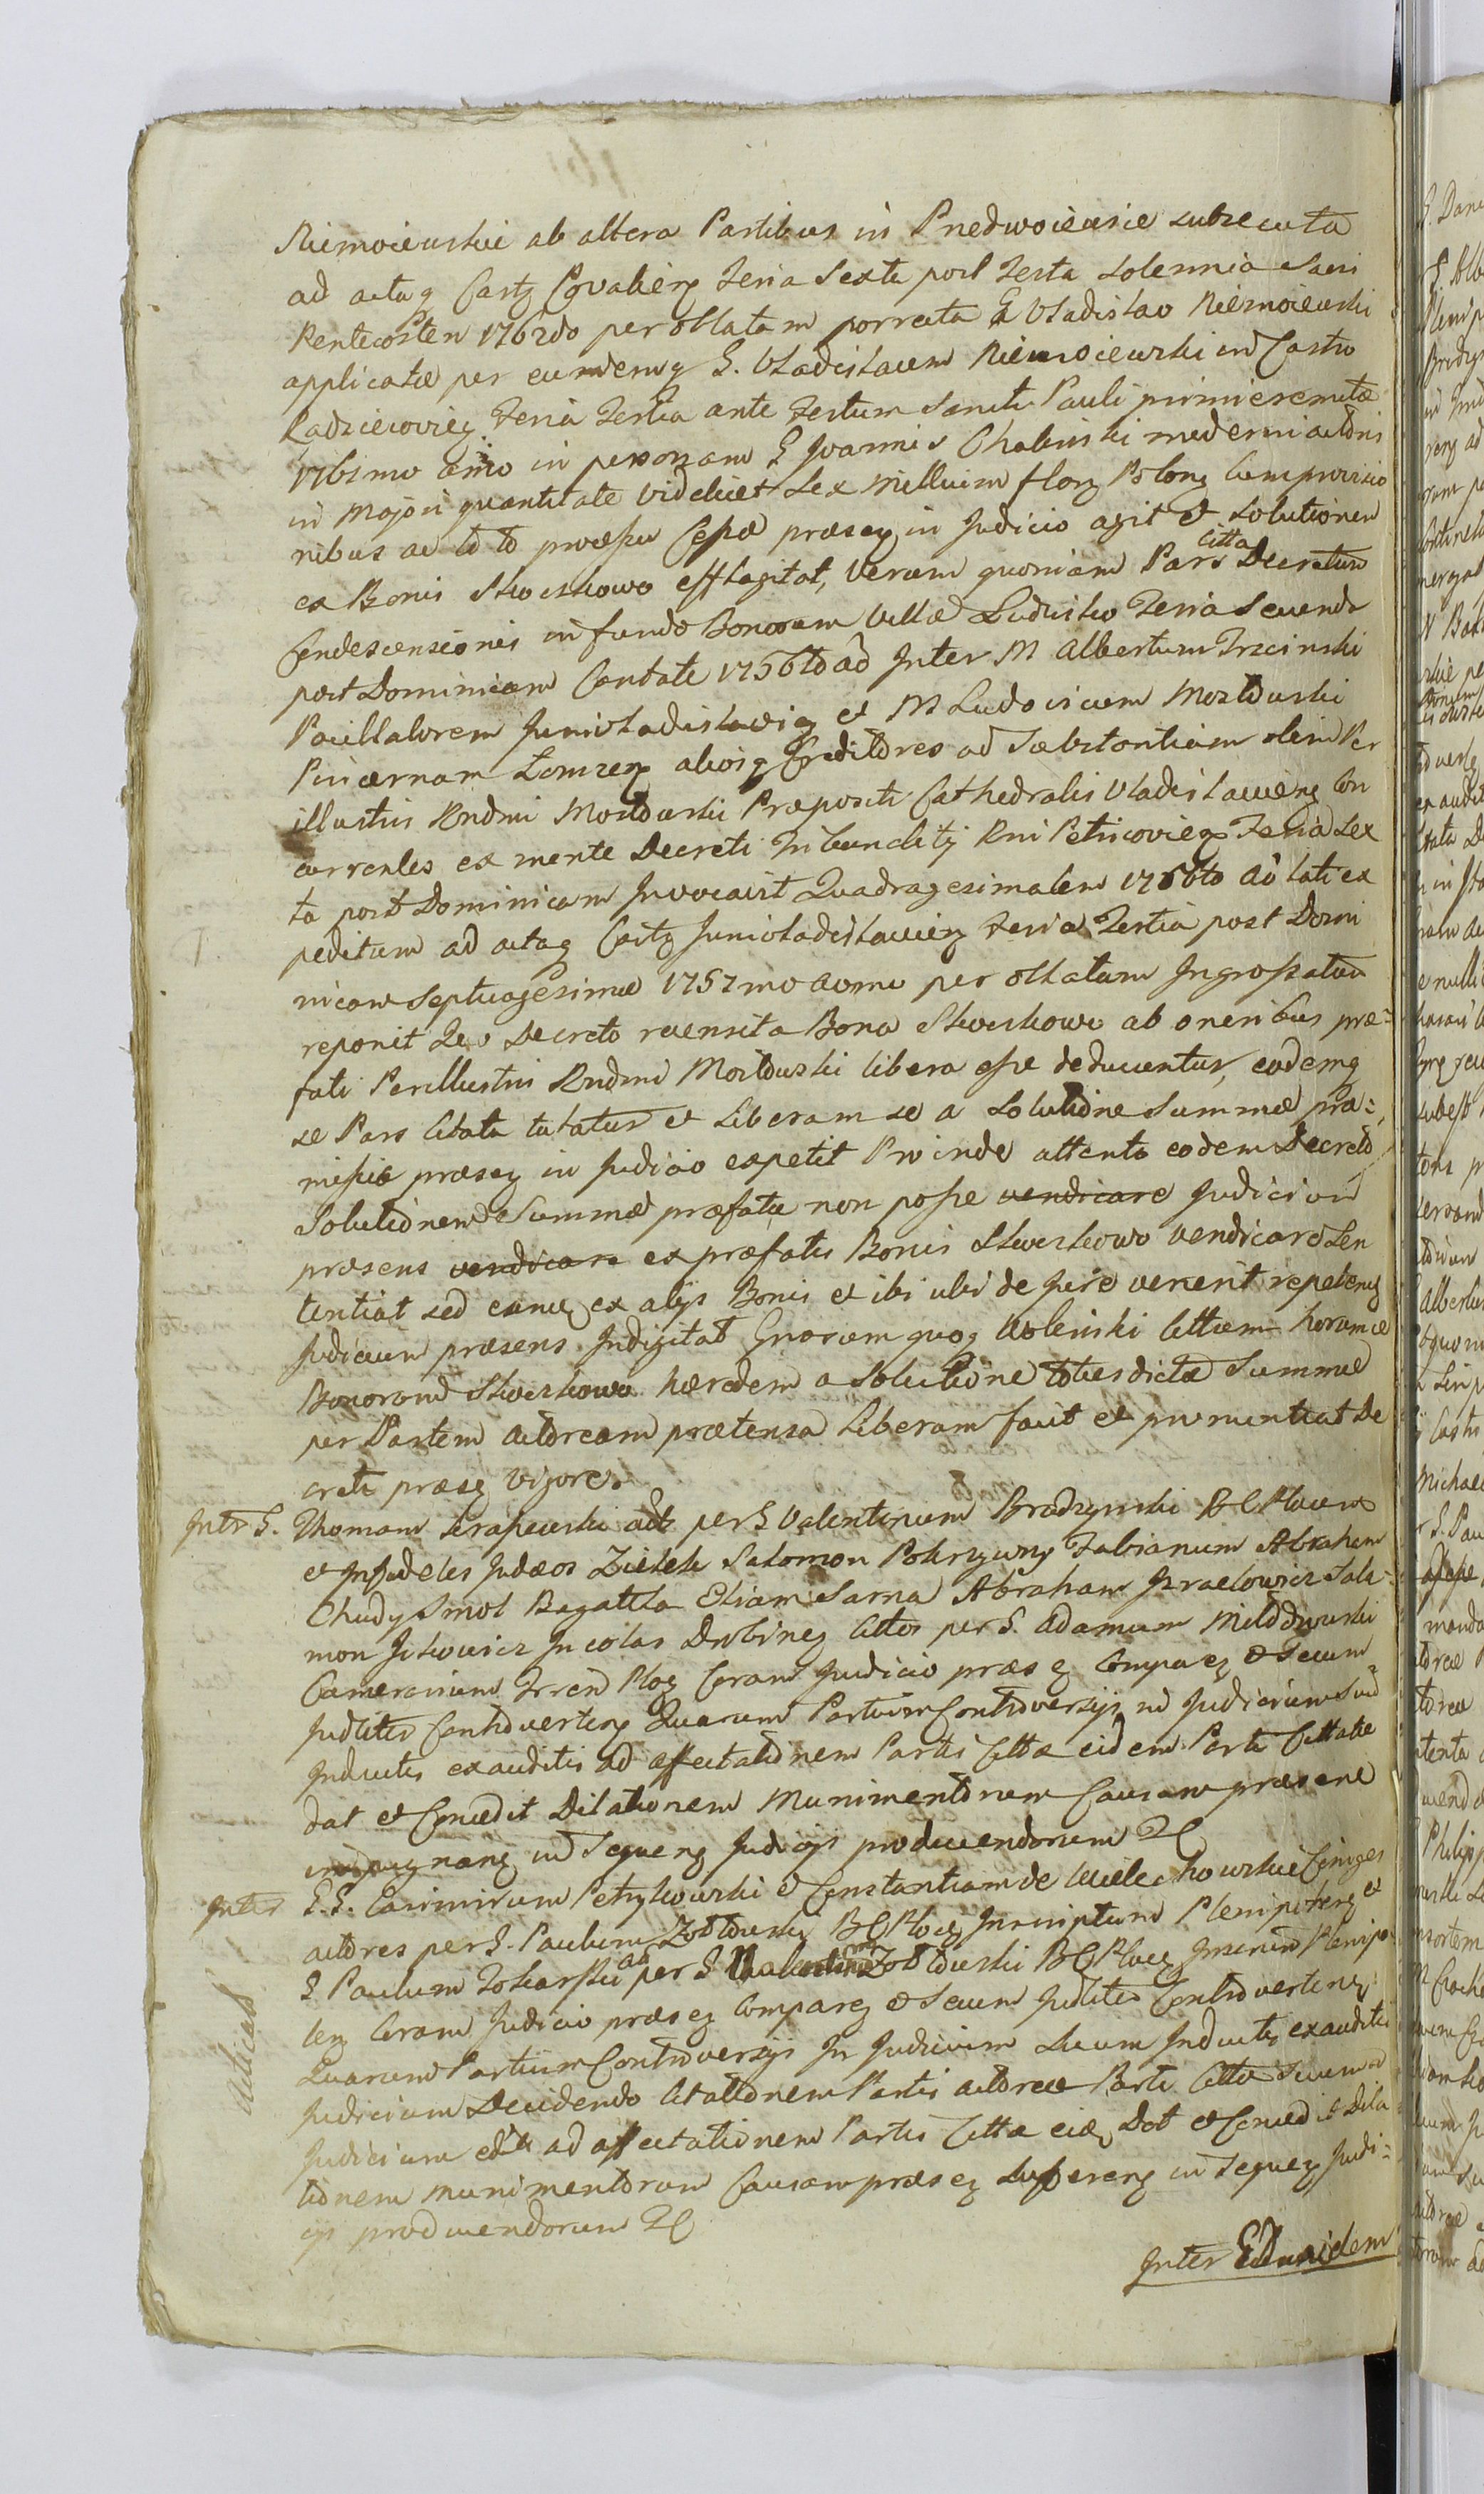 Niemoiewskie ab altera Partibus in Przedwoiewsie subsecuta
ad actaq Castr Kovalien Feria Sexta post Festa Solennia Sacri
Pentecosten 1762do per oblatam porrecta G Vladislao Niemoiewski
applicatæ per eundemq G. Vladislaum Niemoiewski in Castro
Radzieiovieң Feria Tertia ante Festum Sancti Pauli primi eremitæ
1761mo anno in personam G Joannis Chalinski moderni actoris
in majori quantitate videlicet Sex Millium flor Polonq cum provisio
nibus ac præsen in Judicio agit et Solutionem
ex Bonis Skoczkowo efflagitat, Verum quoniam Pars Citta Decretum
Condescensionis in fundo Bonorum Villæ Ludwiko Feria Secunda
post Dominicam Cantate 1756to ad Inter M Albertum Trzcinski
Pocillatorem Junivladislavieq et M Ludovicum Mostowski
Pincernam Lomzen aliosq Creditores ad Substantiam olim Per
illustris Rndmi Mostowski Præpositi Cathedralis Vladislavieng Con
currentes ex mente Decreti Tribunalitij Rni Petricovien Feria Sex
ta post Dominicam Invocavit Quadragesimalem 1756to lati ex
peditum ad actaq Castr Junivladislavien Feria Tertia post Domi
nicam Septuagesimæ 1757mo anno per oblatam Ingrossatum
reponit Quo Decreto recensita Bona Skoczkowo ab oneribus præ=
fati Perillustris Rndmi Mostowski libera esse deducuntur, eodemq
se Pars Citata tutatur et Liberam se a Solutione Summæ præ=
missæ præsen in Judicio expetit Proinde attento eodem Decreto
Solutionem Summæ præfatæ non posse vendicare Judicium
præsens vendicare ex præfatis Bonis Skoczkowo vendicare Sen
tentiat sed eamq ex alijs Bonis et ibi ubi de Jure venerit repetenq
Judicium præsens Indigitat Gnorum quoq Wolenski Cittum horumce
Bonorum Skoczkowo hæredem a Solutione totiesdictæ Summæ
per Partem actoream prætensa Liberam facit et pronuntiat De
creti præseq vigore.
Inter G. Thomam act per G Valentinum Bradzynski BC Plocen
et Infideles Judæos Zielek Salomon Pokrzywny Fabianum Abraham
Chudy Smol Bagatela Eliam Sarna Abraham Izraelowicz Salo-
mon Ickowicz Incolas Drobineq Cittos per G. Adamum Milodrowski
Camerarium Terren Ploq Coram Judicio præs q Compareq et Secum
Judtiter Controverteq Quarum Partium Controversijs in Judicium suum
Inductis exauditis ad affectationem Partis Cittæ eidem Parti Cittatæ
dat et Concedit Dilationem Munimentorum Causam præsene
impugnanq in Sequenq Judicijs producendorum &c
Inter G.G. Casimirum Petrykowski et Constantiam de Wielechowskie Coniges
actores per G. Paulum Zottowski BC Ploceq Inscriptum Plenipoteng et
G Paulum per G Zottowski BC Ploceq Plenipo-
teq Coram Judicio præs q Compareq et Secum Judtiter Controverteneq
Quarum Partium Controversijs In Judicium Suum Inductis exauditis
Judicium Decidendo Citationem Partis actoreæ Parti Cittæ
Judicium ad affectationem Partis Cittæ Dat et Concedit Dila
tionem munimentorum Causam præs q Sufferenq in Sequeq Judi=
cijs producendorum &c
Inter Eundem